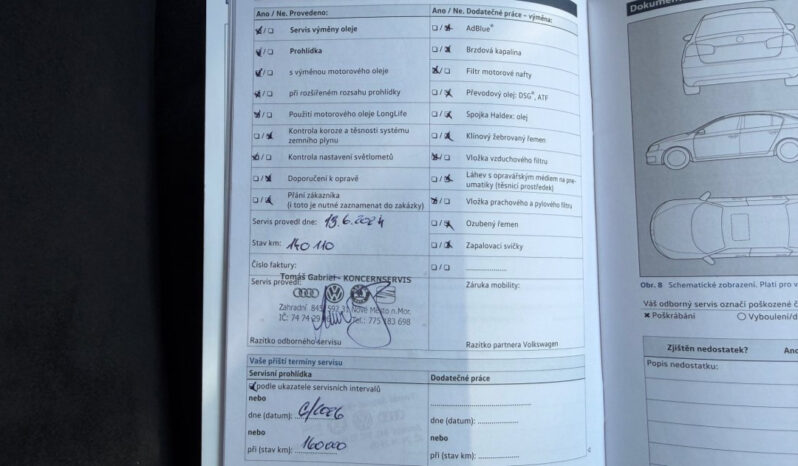 Ano / Ne. Provedeno:
☒/☐ Servis výměny oleje
☒/☐ Prohlídka
☒/☐ s výměnou motorového oleje
☒/☐ při rozšířeném rozsahu prohlídky
☒/☐ Použití motorového oleje LongLife
☐/☒ Kontrola koroze a těsnosti systému
zemního plynu
☒/☐ Kontrola nastavení světlometů
☐/☒ Doporučení k opravě
☐/☒ Přání zákazníka
(i toto je nutné zaznamenat do zakázky)
Servis provedl dne: 13.6.2024
Stav km: 140 110
Číslo faktury:
Servis provedl:
Tomáš Gabriel - KONCERNSERVIS
Zahradní 845, 592 31 Nové Město n.Mor.
IČ: 74 74 29 Tel.: 775 183 698
Razítko odborného servisu
Ano / Ne. Dodatečné práce – výměna:
☐/☒ AdBlue®
☐/☒ Brzdová kapalina
☒/☐ Filtr motorové nafty
☐/☒ Převodový olej: DSG®, ATF
☐/☒ Spojka Haldex: olej
☐/☒ Klínový žebrovaný řemen
☒/☐ Vložka vzduchového filtru
☐/☒ Láhev s opravářským médiem na pne-
umatiky (těsnicí prostředek)
☒/☐ Vložka prachového a pylového filtru
☐/☒ Ozubený řemen
☐/☒ Zapalovací svíčky
☐/☐ ....................
Záruka mobility:
Razítko partnera Volkswagen
Vaše příští termíny servisu
Servisní prohlídka
☒ podle ukazatele servisních intervalů
nebo
dne (datum): 6/2026
nebo
při (stav km): 160000
Dodatečné práce
dne (datum):
nebo
při (stav km):
Dokument
Obr. 8 Schematické zobrazení. Platí pro v
Váš odborný servis označí poškozené č
✖ Poškrábání ○ Vyboulení/d
Zjištěn nedostatek? Ano
Popis nedostatku: